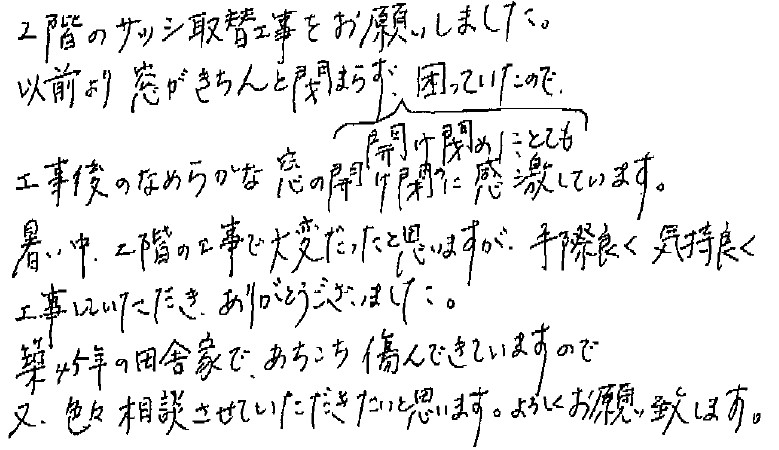 2階のサッシ取替工事をお願いしました。
以前より窓がきちんと閉まらず、困っていたので、
開け閉めにとても
工事後のなめらかな窓の開け閉めに感激しています。
暑い中、2階の工事で大変だったと思いますが、手際良く気持良く
工事していただき、ありがとうございました。
築45年の田舎家で、あちこち傷んできていますので
又、色々相談させていただきたいと思います。よろしくお願い致します。